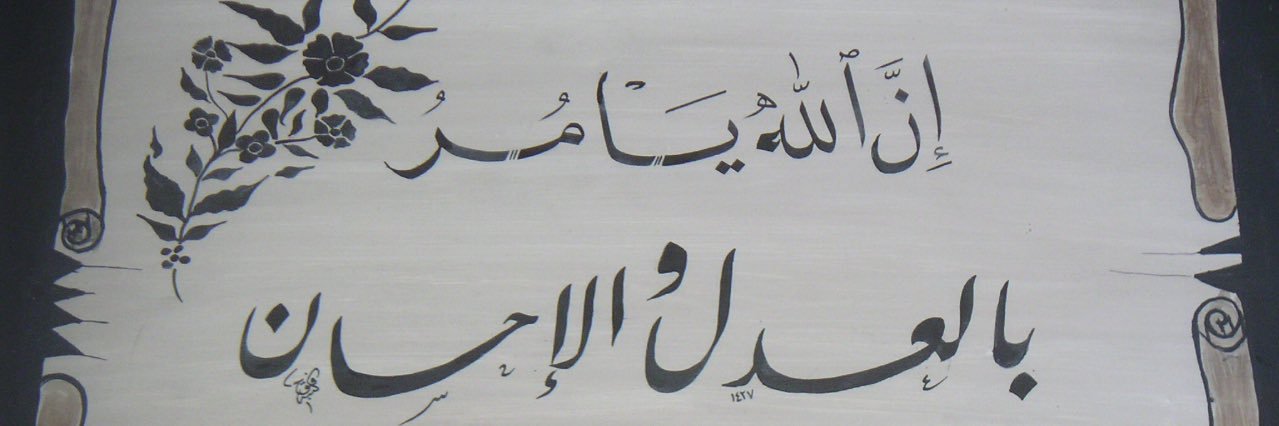 إِنَّ ٱللَّهَ يَأْمُرُ
بالعدل والإحسان
١٤٢٧